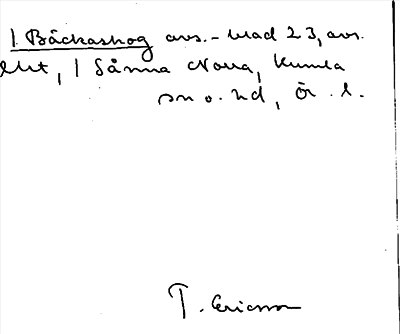 1 Bäckaskog avs.-blad 23, avs.
1 Sånna Norra, Kumla
sn o. hd, Ör. l.
T. Ericsson